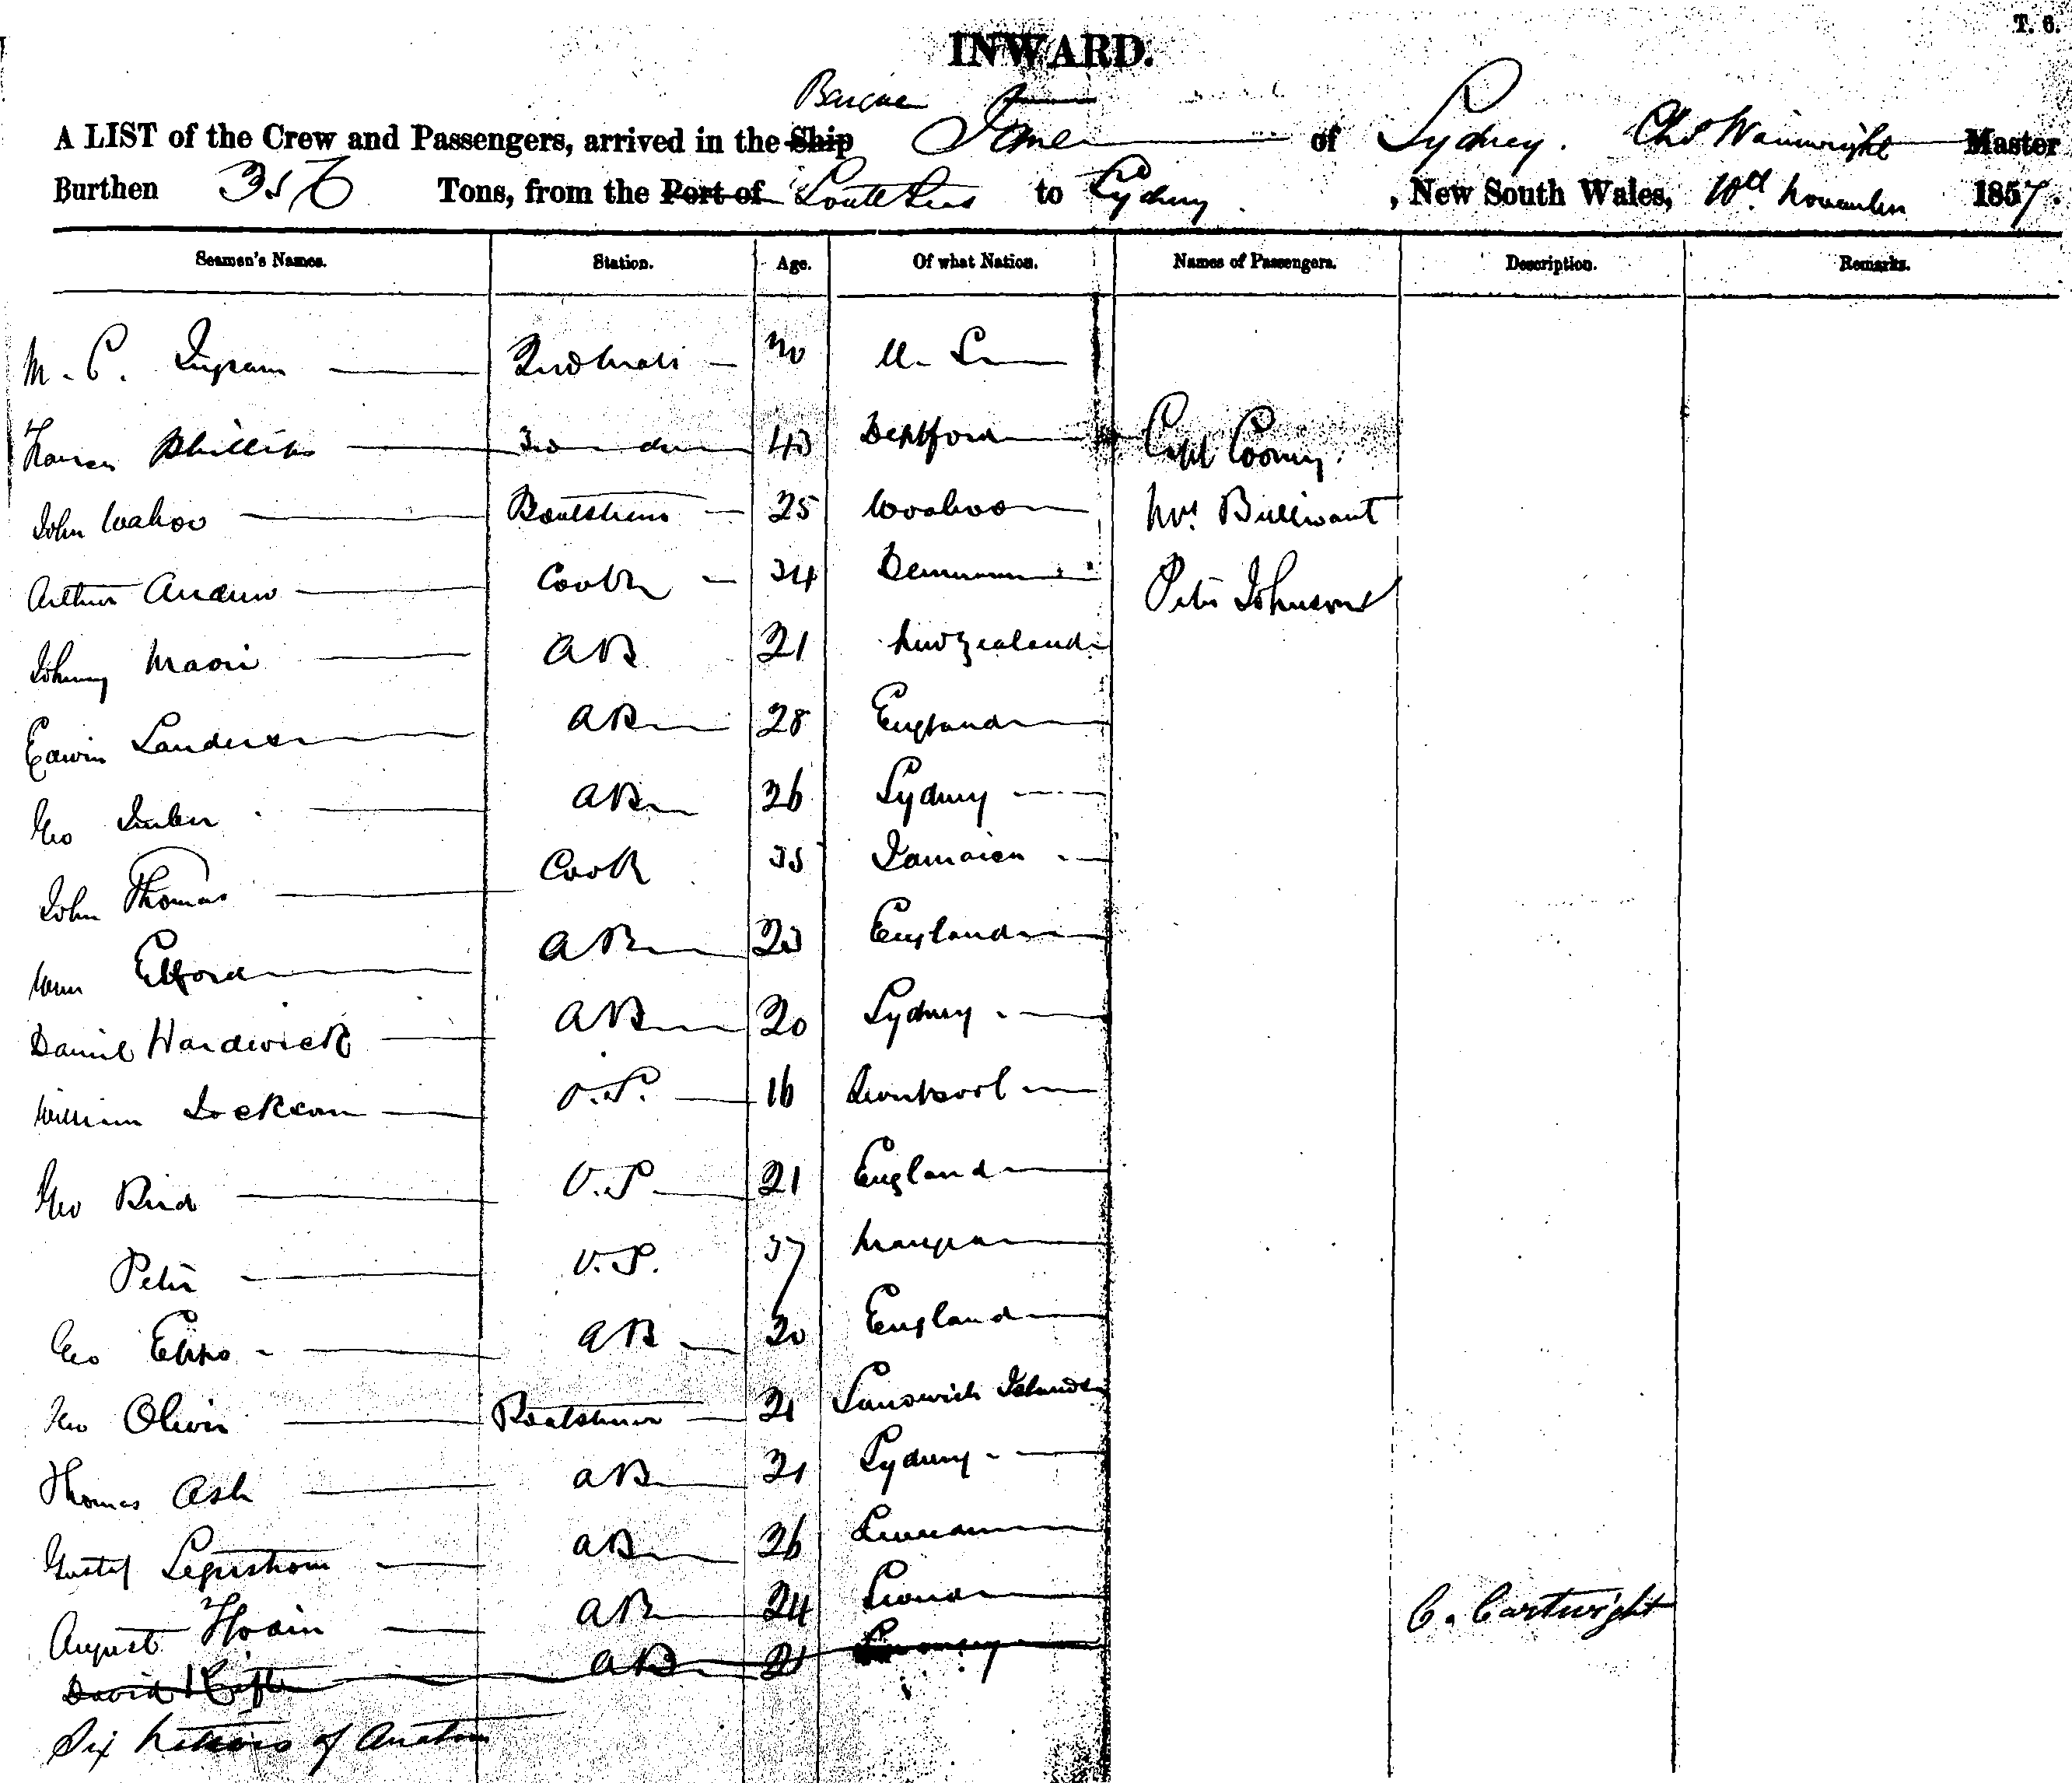 T. 6.
INWARD.
Barque
A LIST of the Crew and Passengers, arrived in the Ship of Sydney. Chs Wainwright Master
Burthen 356 Tons, from the Port of South Seas to Sydney, New South Wales, 10th November 1857.
Seamen's Names. Station. Age. Of what Nation. Names of Passengers. Description. Remarks.
M. C. Ingram 30 U. S.
Phillips 43 Deptford Capt
John Wahoo Boatsteerer 25 Woahoo Mr. Bullivant
Arthur Andrew 34 Peter Johnson
Johnny Maori AB 21 New Zealand
Edwin Sanders AB 28 England
Geo AB 26 Sydney
John Thomas Cook 35 Jamaica
Wm Elford AB 23 England
Daniel Hardwick AB 20 Sydney
William Jackson O.S. 16 Liverpool
Geo Bird O.S. 21 England
Peter O.S. 37
Geo AB 20 England
Geo Oliver Boatsteerer 21 Sandwich Islands
Thomas Ash AB 21 Sydney
Gustaf AB 26
August AB 24
C. Cartwright
David AB 21
Six Natives of